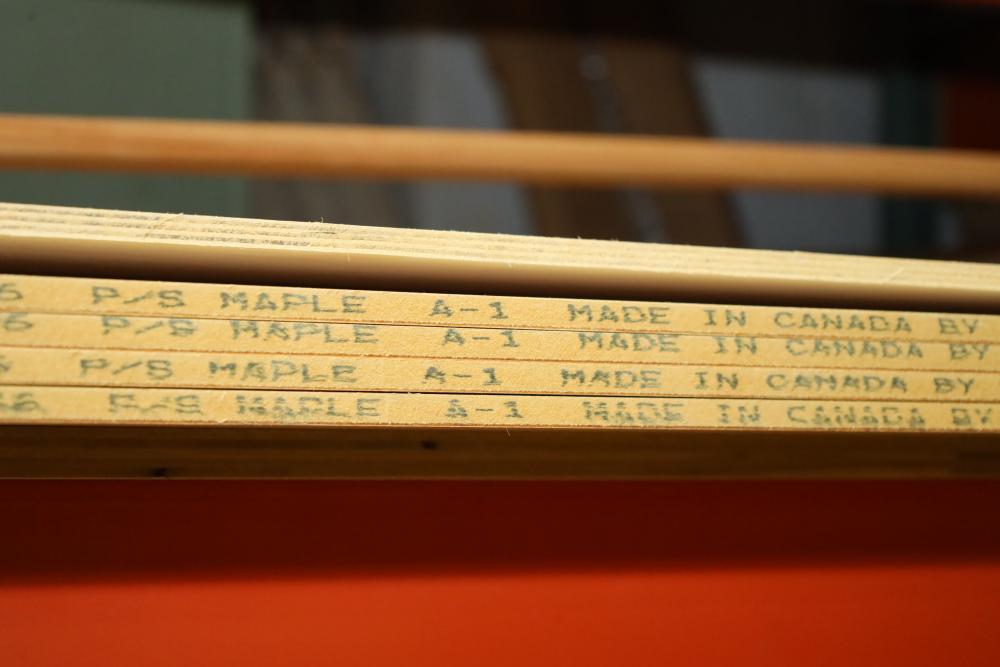 6 P/S MAPLE A-1 MADE IN CANADA BY
6 P/S MAPLE A-1 MADE IN CANADA BY
P/S MAPLE A-1 MADE IN CANADA BY
6 P/S MAPLE A-1 MADE IN CANADA BY